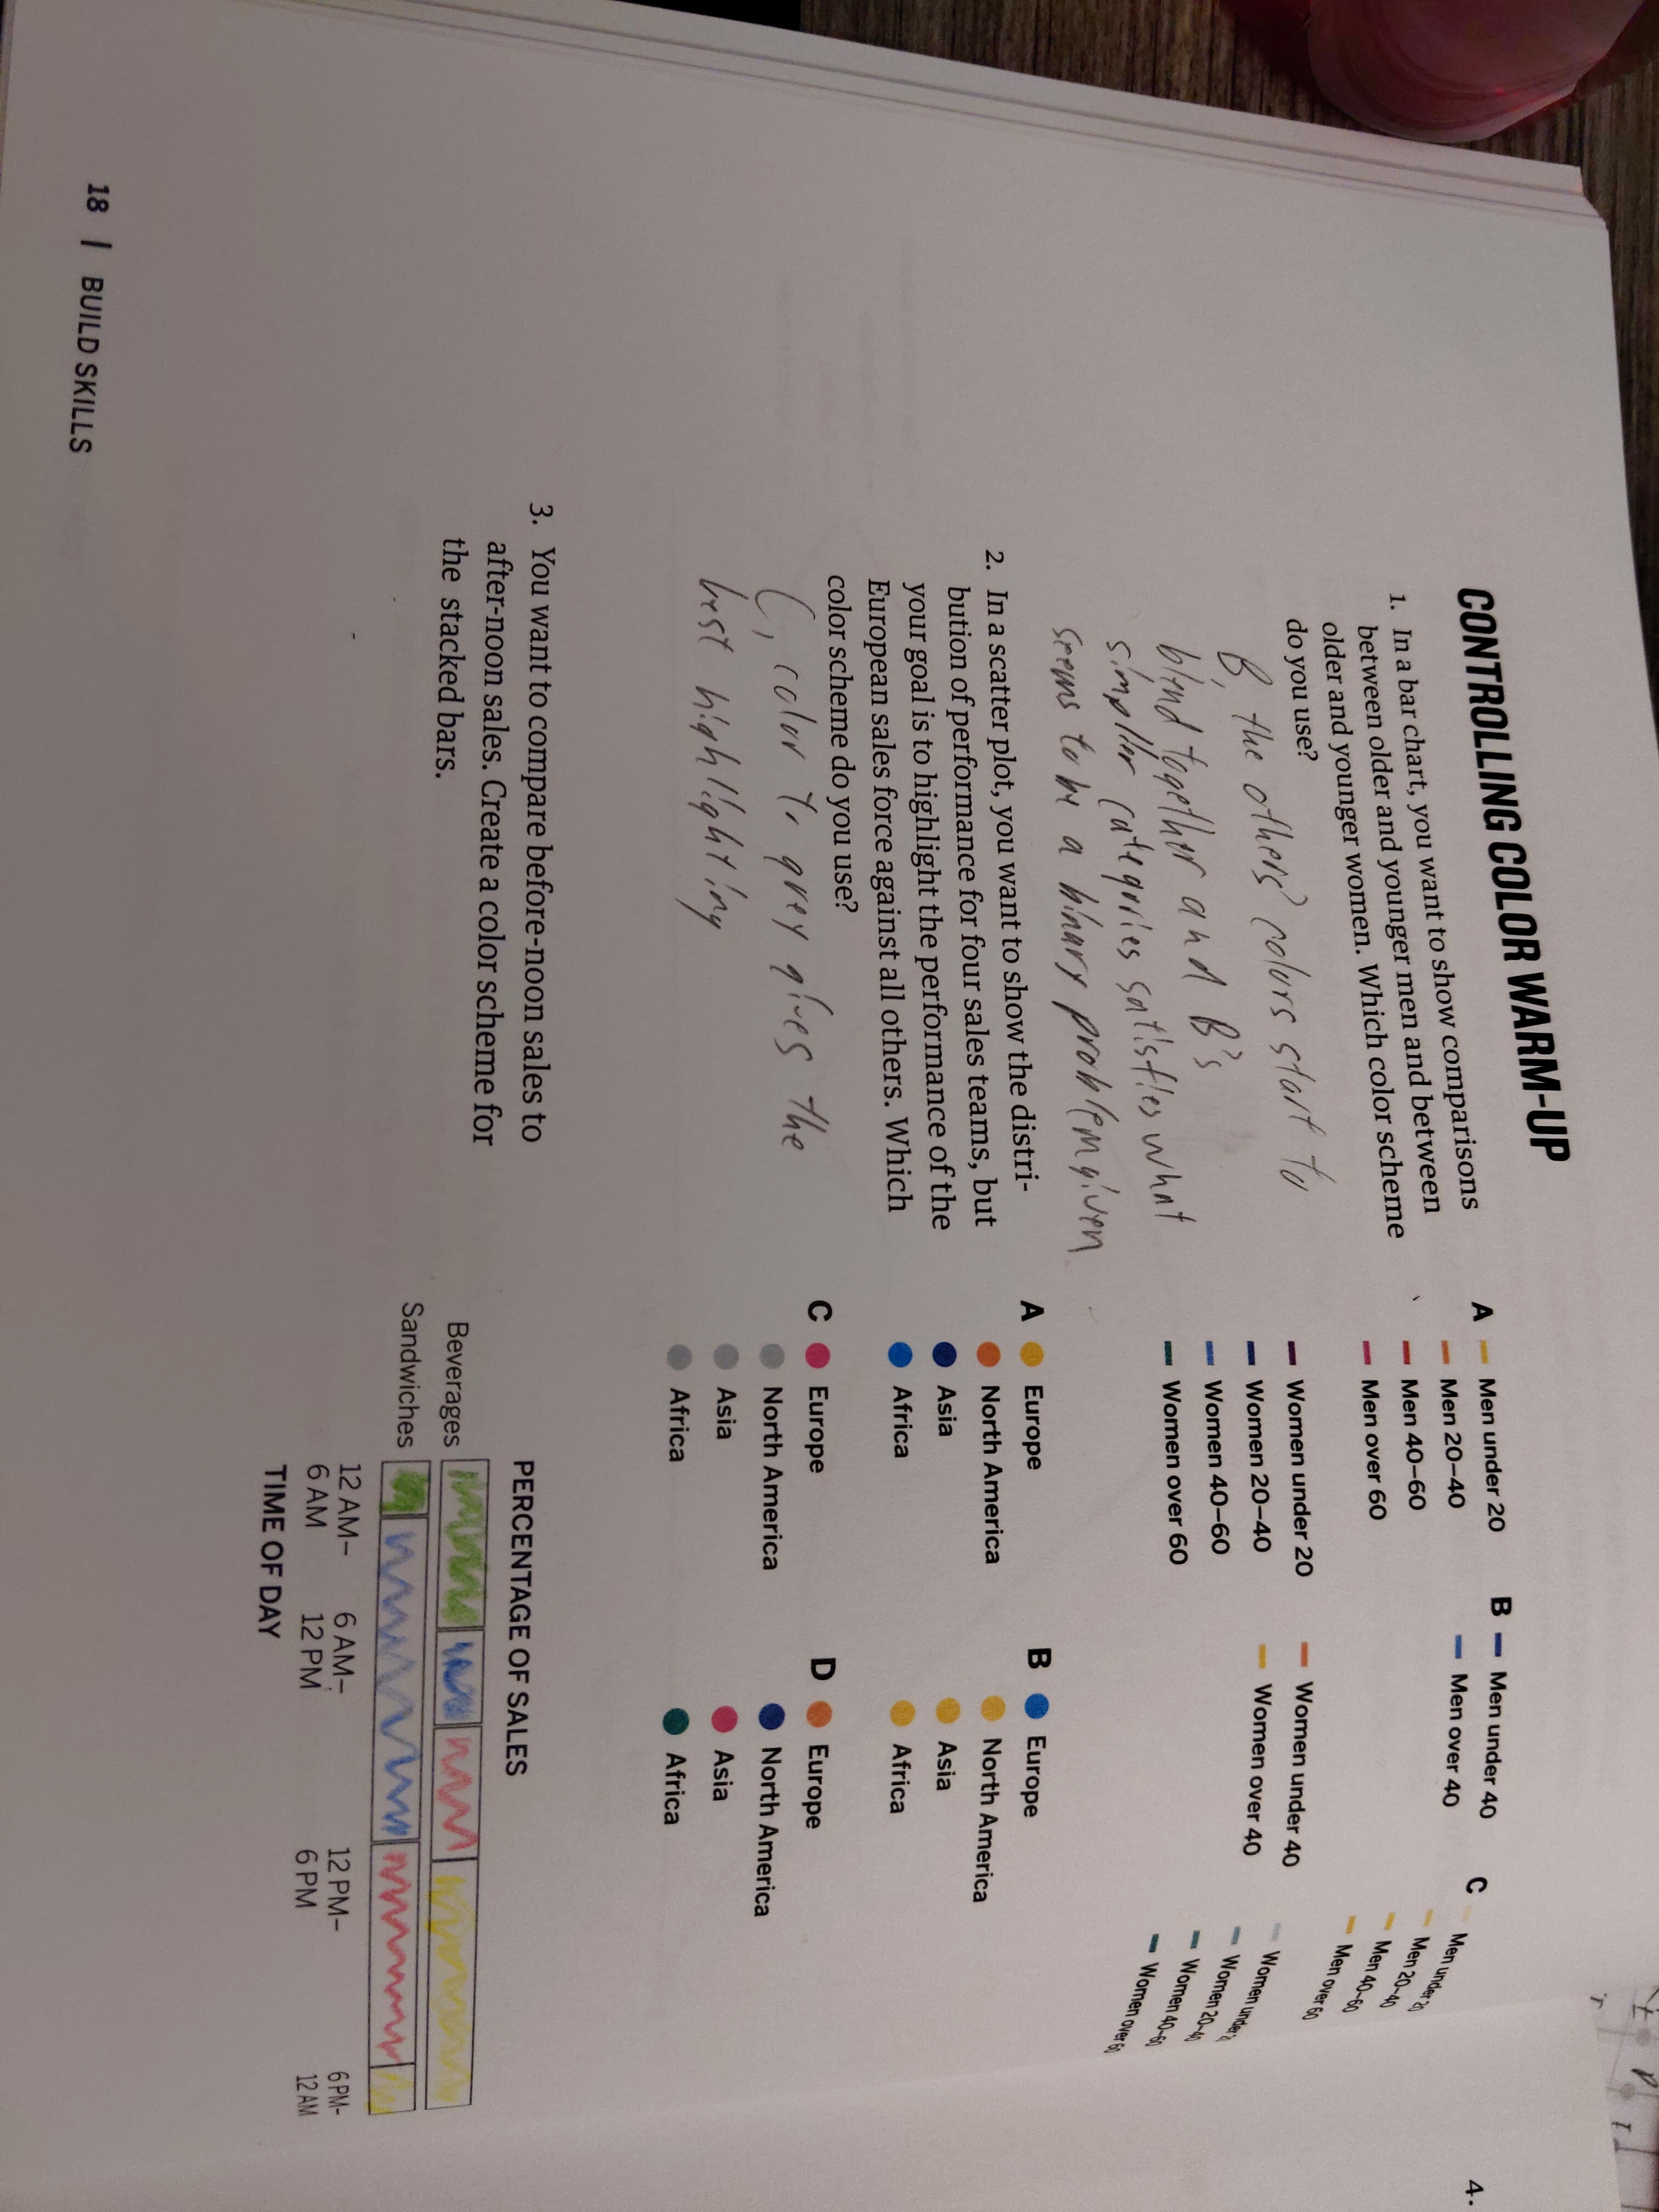 CONTROLLING COLOR WARM-UP
1. In a bar chart, you want to show comparisons
between older and younger men and between
older and younger women. Which color scheme
do you use?
B, the others' colours start to
blend together and B's
simpler categories satisfies what
seems to be a binary problem given
A
Men under 20
Men 20–40
Men 40–60
Men over 60
Women under 20
Women 20–40
Women 40–60
Women over 60
B
Men under 40
Men over 40
Women under 40
Women over 40
C
Men under 20
Men 20–40
Men 40–60
Men over 60
Women under
Women 20–40
Women 40–60
Women over 60
2. In a scatter plot, you want to show the distri-
bution of performance for four sales teams, but
your goal is to highlight the performance of the
European sales force against all others. Which
color scheme do you use?
C, color to grey gives the
best highlighting
A
Europe
North America
Asia
Africa
B
Europe
North America
Asia
Africa
C
Europe
North America
Asia
Africa
D
Europe
North America
Asia
Africa
3. You want to compare before-noon sales to
after-noon sales. Create a color scheme for
the stacked bars.
PERCENTAGE OF SALES
Beverages
Sandwiches
12 AM–
6 AM
6 AM–
12 PM
12 PM–
6 PM
6 PM–
12 AM
TIME OF DAY
18 | BUILD SKILLS
4.